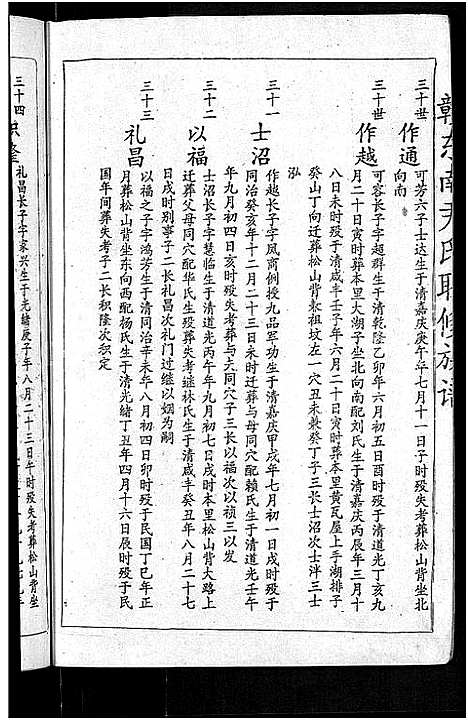 赣东南尹氏联修族谱
三十世
作通
可芳六子士达生于清嘉庆庚午年七月十一日子时殁失考葬松山背坐北
向南
三十世
作越
可容长子字超群生于清乾隆乙卯年六月初五日酉时殁于清道光丁亥九
月二十日寅时葬本里大湖子坐北向南配刘氏生于清嘉庆丙辰年三月十
八日未时殁于清咸丰壬子年六月二十日寅时葬本里黄瓦屋上手湖排子
癸山丁向迁葬松山背禄祖坟左一穴丑未兼癸丁子三长士沼次士泮三士
泓
三十一
士沼
作越长子字凤商例授九品军功生于清嘉庆甲戌年十一月初一日戌时殁于
同治癸亥年十二月二十三日未时迁葬与母同穴配赖氏生于清道光壬午
年九月初四日亥时殁失考葬与夫同穴子三长以福次以祯三以发
三十二
以福
士沼长子字慧临生于清道光丙午年九月初七日戌时本里松山背大路上
迁葬父母同穴配华氏生殁葬失考继林氏生于清咸丰癸丑年八月二十七
日戌时别事子二长礼昌次礼门过继以姻为嗣
三十三
礼昌
以福之子字鸿芳生于清同治辛未年八月初四日卯时殁于民国丁巳年正
月葬松山背坐东向西配杨氏生于清光绪丁丑年四月十六日辰时殁于民
国年间葬失考子二长积隆次积定
三十四
积隆
礼昌长子字家兴生于光绪庚子年八月二十三日午时殁失考葬松山背坐